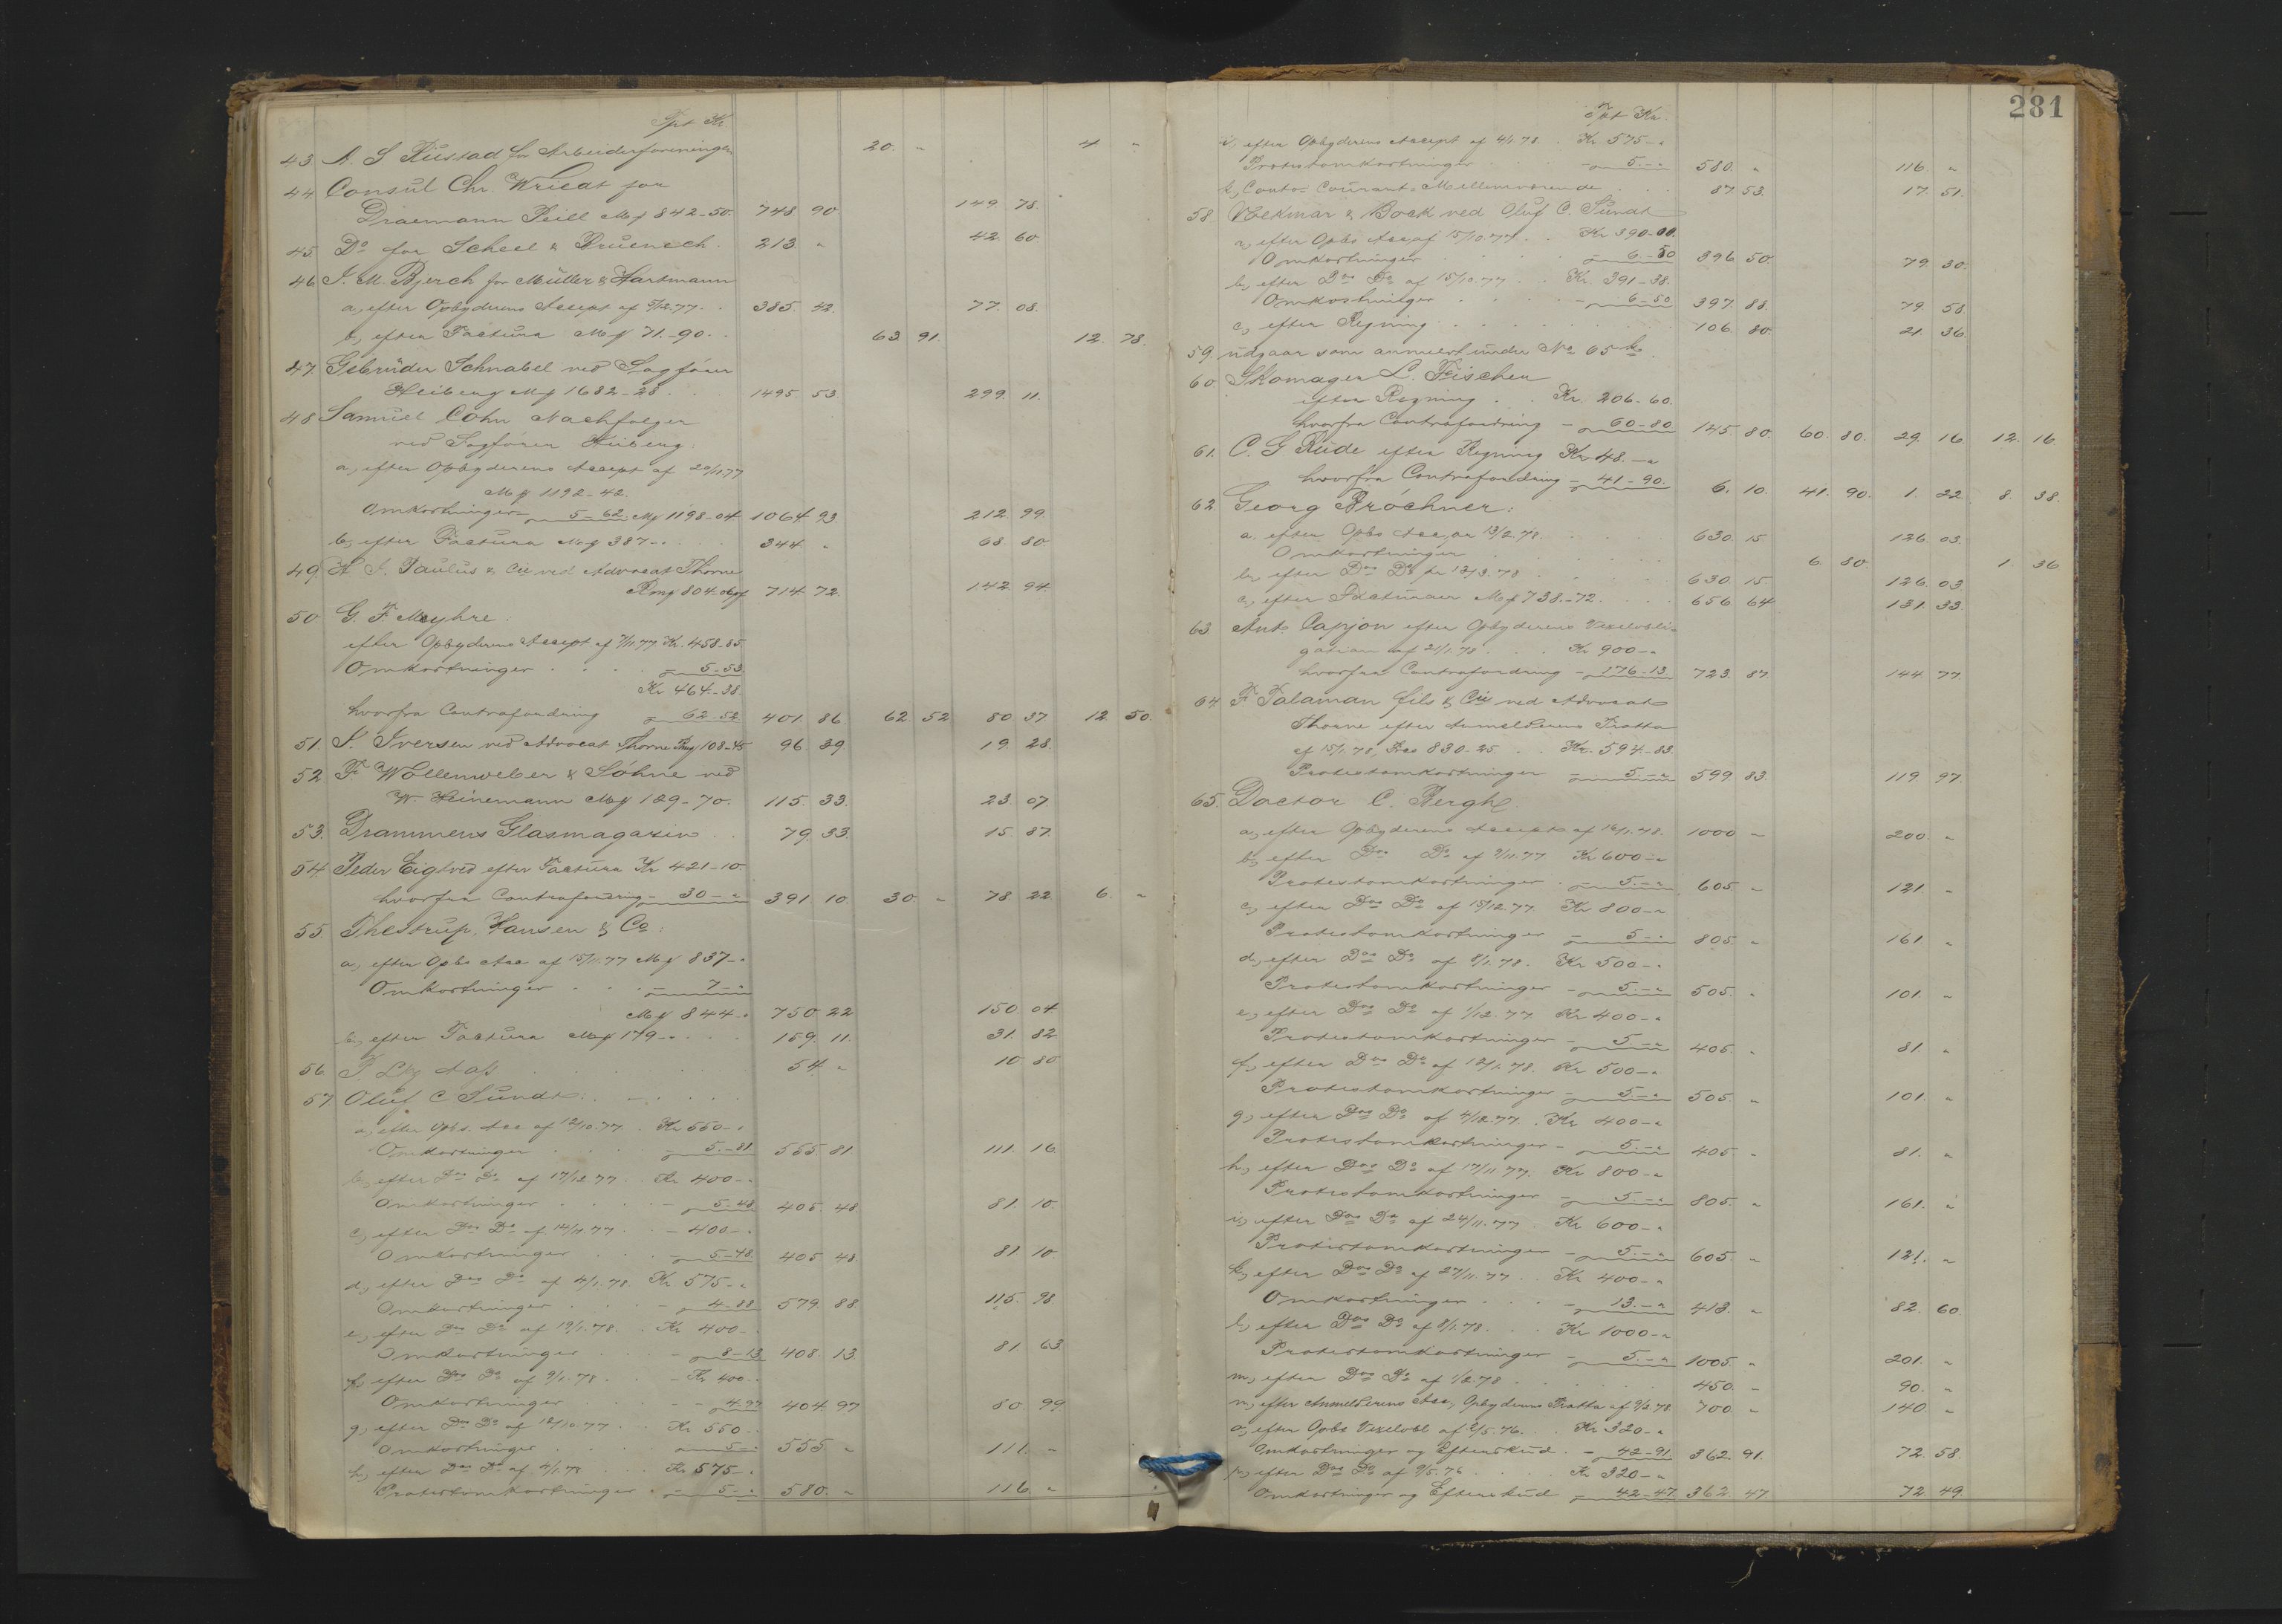 Tpt Kr.
43. A. S. Rustad for Arbeiderforeningen 20. " 4 "
44 Consul Chr. Wriedt for
Draemann Peill Mf 842-50. 748. 90. 149. 78.
45. Do for Scheel & 213 " 42. 60.
46 J. M. Bjerch for Müller & Hartmann
a, efter Opbyderens Accept af 5/12.77. 385. 42. 77. 08.
b, efter Factura Mf 71.-90. 63. 91. 12. 78.
47. Gebrüder Schnabel ved Sagfører
Heiberg Mf 1682-28 1495. 53. 299. 11.
48 Samuel Cohn Nachfolger
ved Sagfører Heiberg.
a, efter Opbyderens Accept af 20/11.77
Mf 1192-42.
Omkostninger - 5-62. Mf 1198-04 1064. 93. 212. 99.
b, efter Factura Mf 387-" 344. " 68 80.
49. H. J. Paulus & Cie ved Advocat Thorne
Rmf 804. 714. 72. 142. 94.
50. G. F. Meyhre:
efter Opbyderens Accept af 7/11.77 Kr. 458-85
Omkostninger - 5-53
Kr 464-38.
hvorfra Contrafordring - 62-52 401. 86. 62. 52 80 37. 12 50.
51. S. Iversen ved Advocat Thorne Rmf 108-45 96. 39. 19. 28.
52. F. Wollenweber & Söhne ved
W. Heinemann Mf 129-70. 115. 33. 23. 07.
53. Drammens Glasmagazin 79. 33. 15. 87.
54. Peder Eigtved efter Factura Kr 421-10.
hvorfra Contrafordring - 30-" 391. 10. 30. " 78. 22. 6. "
55 Thestrup, Hansen & Co:
a, efter Opbs Acc af 15/11.77 Mf 837-"
Omkostninger - 7-"
Mf 844-" 750. 22 150. 04.
b, efter Factura Mf 179-" 159. 11. 31. 82
56 54. " 10. 80
57 Oluf C Sundt:
a, efter Opbs. Acc af 12/10.77 Kr 550-"
Omkostninger - 5.-81. 555 81 111. 16.
b, efter Dos Do af 17/12.77 Kr 400-"
Omkostninger - 5-48 405. 48. 81. 10.
c, efter Dos Do af 14/11.77 - 400-"
Omkostninger - 5-48. 405. 48. 81. 10.
d, efter Dos Do af 4/1.78 Kr 575-"
Omkostninger - 4-88 579. 88. 115. 98.
e, efter Dos Do af 19/1.78. Kr 400-"
Omkostninger - 8-13 408. 13. 81. 63.
f, efter Dos Do af 9/1.78 - Kr 400-"
Omkostninger - 4.97 404. 97 80. 99
g, efter Dos Do af 12/10.77 Kr 550-"
Omkostninger - 5-" 555. " 111. "
h, efter Dos Do af 4/1.78 Kr 575-"
Protestomkostninger - 5-" 580. " 116. "
281
Tpt Kr.
i, efter Opbyderens Accept af 4/1.78. Kr 575-"
Protestomkostninger - 5.-" 580. " 116. "
k, Conto-Courant-Mellemværende 87. 53. 17. 51.
58. Volkmar & Bock ved Oluf C. Sundt
a, efter Opbs Acc af 15/10.77. Kr 390-00.
Omkostninger - 6.-50 396 50. 79. 30.
b, efter Dos Do af 15/10.77 Kr. 391-38.
Omkostninger - 6-50 397. 88. 79. 58.
c, efter Regning 106 80. 21. 36.
59. udgaar som anmeldt under No 65
60. Skomager L. Fischer
efter Regning Kr. 206-60.
hvorfra Contrafordring - 60-80 145. 80. 60. 80. 29. 16. 12. 16.
61. C. G. Rude efter Regning Kr 48.-"
hvorfra Contrafordring - 41-90. 6. 10. 41. 90. 1. 22. 8. 38.
62 Georg Bróchner:
a. efter Opbs Acc pr 13/2.78. 630. 15 126. 03.
Omkostninger 6. 80. 1. 36
b, efter Dos Do pr 13/3.78 630. 15 126. 03.
c, efter Facturaer Mf 738.-72. 656. 64 131. 33.
63. Ant. Capjon efter Opbyderens Vexelobli-
gation af 21/1.78 Kr 900-"
hvorfra Contrafordring - 176-13. 723. 87. 144. 77.
64 F. Talaman fils & Cie ved Advocat
Thorne efter Anmelderens Tratta
af 15/1.78, Frcs 830-25. Kr. 594-83.
Protestomkostninger - 5.-" 599 83. 119. 97.
65. Doctor C. Bergh.
a, efter Opbyderens Accept af 16/1.78. 1000 - 200. "
b, efter Dos Do af 9/11.77. Kr 600-"
Protestomkostninger - 5.-" 605. " 121 "
c, efter Dos Do af 15/12.77. Kr 800-"
Protestomkostninger - 5-" 805. " 161. "
d, efter Dos Do af 8/1.78. Kr 500-"
Protestomkostninger - 5.-" 505. " 101. "
e, efter Dos Do af 1/12.77 Kr 400-"
Protestomkostninger - 5.-" 405. " 81. "
f, efter Dos Do af 12/1.78. Kr 500-"
Protestomkostninger - 5.-" 505. " 101. "
g, efter Dos Do af 4/12.77. Kr 400-"
Protestomkostninger - 5.-" 405 " 81. "
h, efter Dos Do af 17/11.77. Kr 800-"
Protestomkostninger - 5.-" 805. " 161. "
i, efter Dos Do af 24/11.77. Kr 600-"
Protestomkostninger - 5.-" 605. " 121. "
k, efter Dos Do af 27/11.77. Kr 400-"
Omkostninger - 13.-" 413. " 82. 60.
l, efter Dos Do af 8/1.78. Kr 1000-"
Protestomkostninger - 5.-" 1005. " 201. "
m, efter Dos Do af 1/2.78 450. " 90. "
n, efter Anmelderens Acc, Opbyderens Tratta af 2/2.78 700. " 140. "
o, efter Opbs Vexelobl af 2/5.76. Kr 320-"
Omkostninger og Efterskud. - 42-91. 362. 91. 72. 58.
p, efter Dos Do af 9/5.76 Kr 320-"
Omkostninger og Efterskud - 42-47. 362. 47 72. 49.